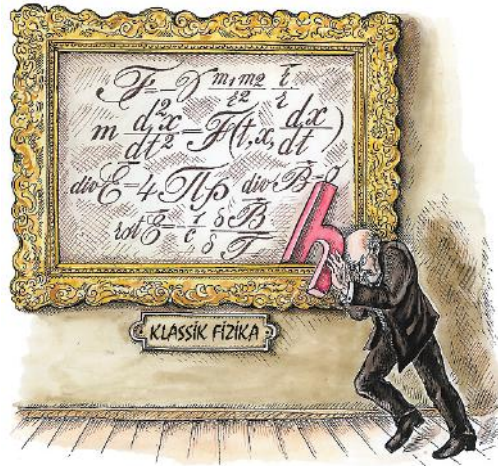 F=-γ m₁m₂/r² r̄/r
m d²x/dt²=F(t,x,dx/dt)
div E=4πρ div B=0
rot E=1/c δB/δT
h
KLASSİK FİZİKA